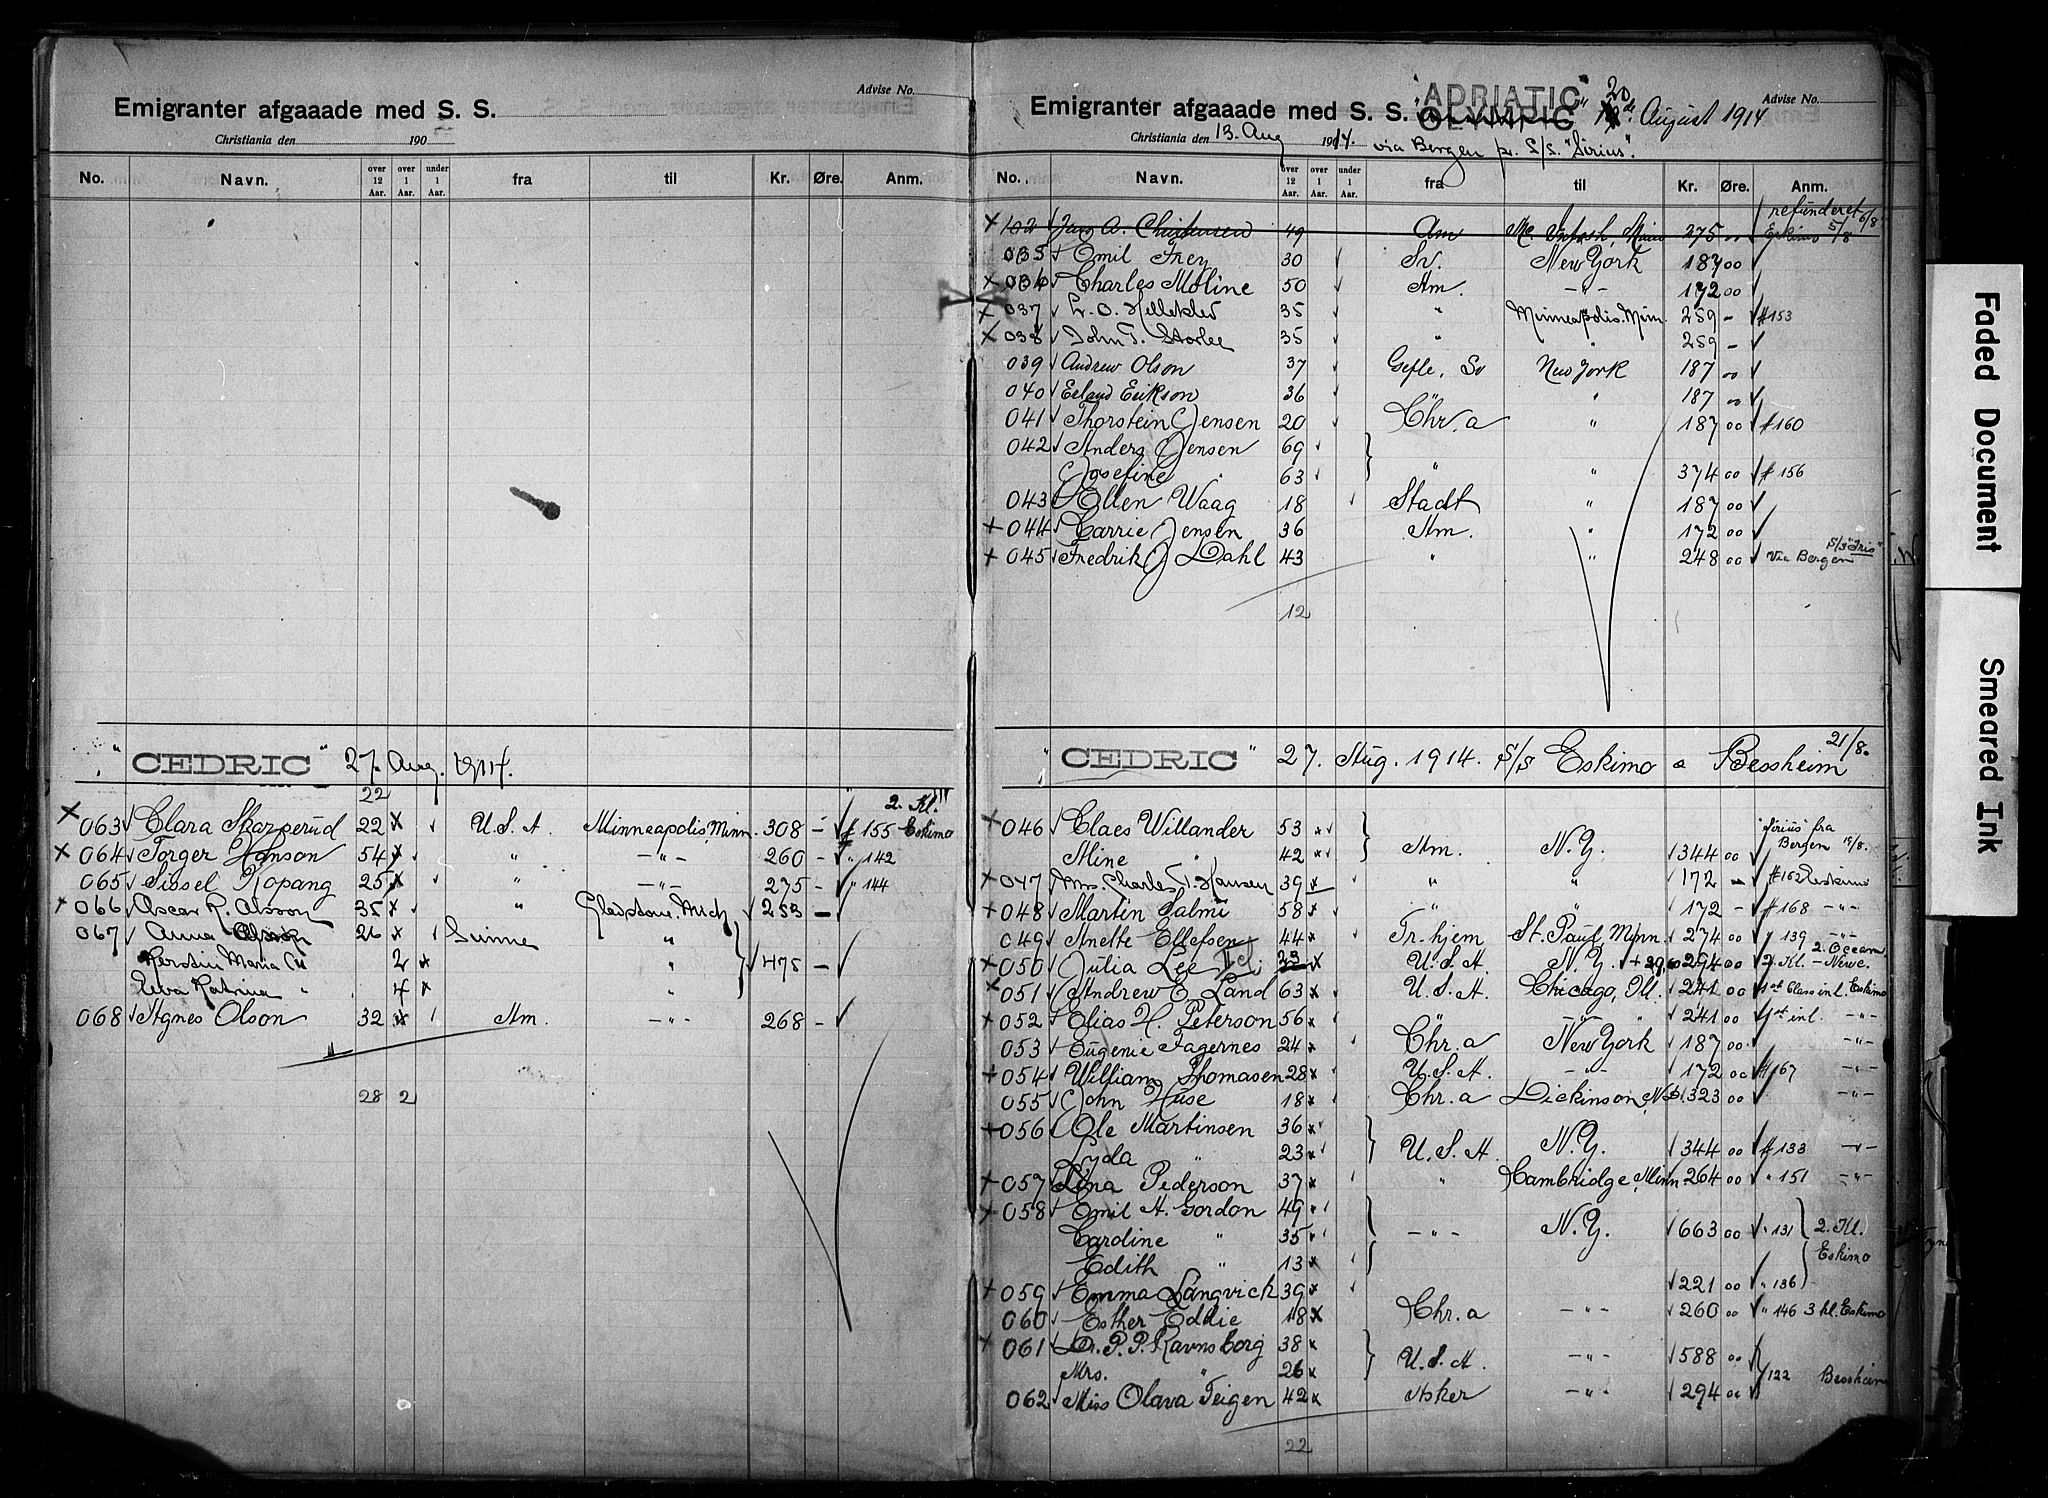 Advise No.
Emigranter afgaaade med S. S.
Christiania den 190
No. Navn. over 12 Aar. over 1 Aar. under 1 Aar. fra til Kr. Øre. Anm.
"CEDRIC" 27. Aug. 1914.
22
2. Kl.
063 Clara Skarperud 22 U.S.A. Minneapolis, Minn. 308 - # 155 Eskimo
064 Torger Hanson 54 " -"- 260 - " 142
065 Sissel Kopang 25 " -"- 275 - " 144
066 Oscar R. Olsson 35 " Gladstone. Mich 253 -
067 Anna 26 Sunne "
Kerstin Maria 2 " 475 -
Katrina " 4 "
068 Agnes Olson 32 Am. -"- 268 -
28 2
Advise No.
Emigranter afgaaade med S. S. "ADRIATIC" OLYMPIC" 20 de August 1914
Christiania den 13. Aug 1914. via Bergen pr. S/S. "Sirius".
No. Navn. over 12 Aar. over 1 Aar. under 1 Aar. fra til Kr. Øre. Anm.
refunderet 6/8
102 A. Christensen 49 Am Mc. Intosh, Minn 375 00 Eskimo 5/8
035 Emil Frey 30 Sv. New York 187 00
036 Charles Moline 50 Am. -"- 172 00
037 L. O. 35 " Minneapolis. Minn. 259 - # 153
038 John T. Storlee 35 " " 259 -
039 Andrew Olson 37 Gefle, Sv New York 187 00
040 Erland Erikson 36 " 187 00
041 Thorstein Jensen 20 Chr.a " 187 00 # 160
042 Anders Jensen 69
Josefine " 63 " " 374 00 # 156
043 Ellen Waag 18 Stadt " 187 00
044 Carrie Jensen 36 Am. " 172 00
045 Fredrik J Dahl 43 " " 248 00 Via Bergen S/S "Iris"
12
"CEDRIC" 27. Aug. 1914. S/S Eskimo a Bessheim 21/8.
046 Claes Willander 53 "Sirius" fra
Mine " 42 Am. N.Y. 344 00 Bergen 18/8.
047 Mrs. Charles T. Hansen 39 " " 172 - # 162 Eskimo
048 Martin Salmi 58 " " 172 - # 168 -"-
049 Anette Ellefsen 44 Tr.hjem St. Paul, Minn. 274 00 " 139 -"-
050 Julia Lee II cl. 23 U.S.A. N.Y. 294 00 2. Kl. - 2. Ocean Newc.
051 Andrew E. Land 63 U.S.A. Chicago, Ill. 241 00 1st Class inl. Eskimo
052 Elias H. Peterson 56 " -"- 241 00 1st inl. -"-
053 Eugenie Fagernes 24 Chr.a New York 187 00 -"-
054 William Thomasen 28 U.S.A. -"- 172 00 # 167 -"-
055 John Huse 18 Chr.a Dickinson, N.D. 323 00 -"-
056 Ole Martinsen 36
Lyda " 23 U.S.A. N.Y. 344 00 # 133 -"-
057 Lina Pederson 37 " Cambridge, Minn 264 00 " 151 -"-
058 Emil A. Gordon 49
Caroline " 35 -"- N.Y. 663 00 " 131 2. Kl.
Edith " 13 Eskimo
059 Emma Langvick 39 221 00 " 136
060 Esther Eddie 18 Chr.a -"- 260 00 " 146 3 kl. Eskimo
061 Dr. P. P. Ravnsborg 38
Mrs. " 26 U.S.A. -"- 588 00 122 Bessheim
062 Miss Olava Teigen 42 Asker -"- 294 00
22
Faded Document
Smeared Ink